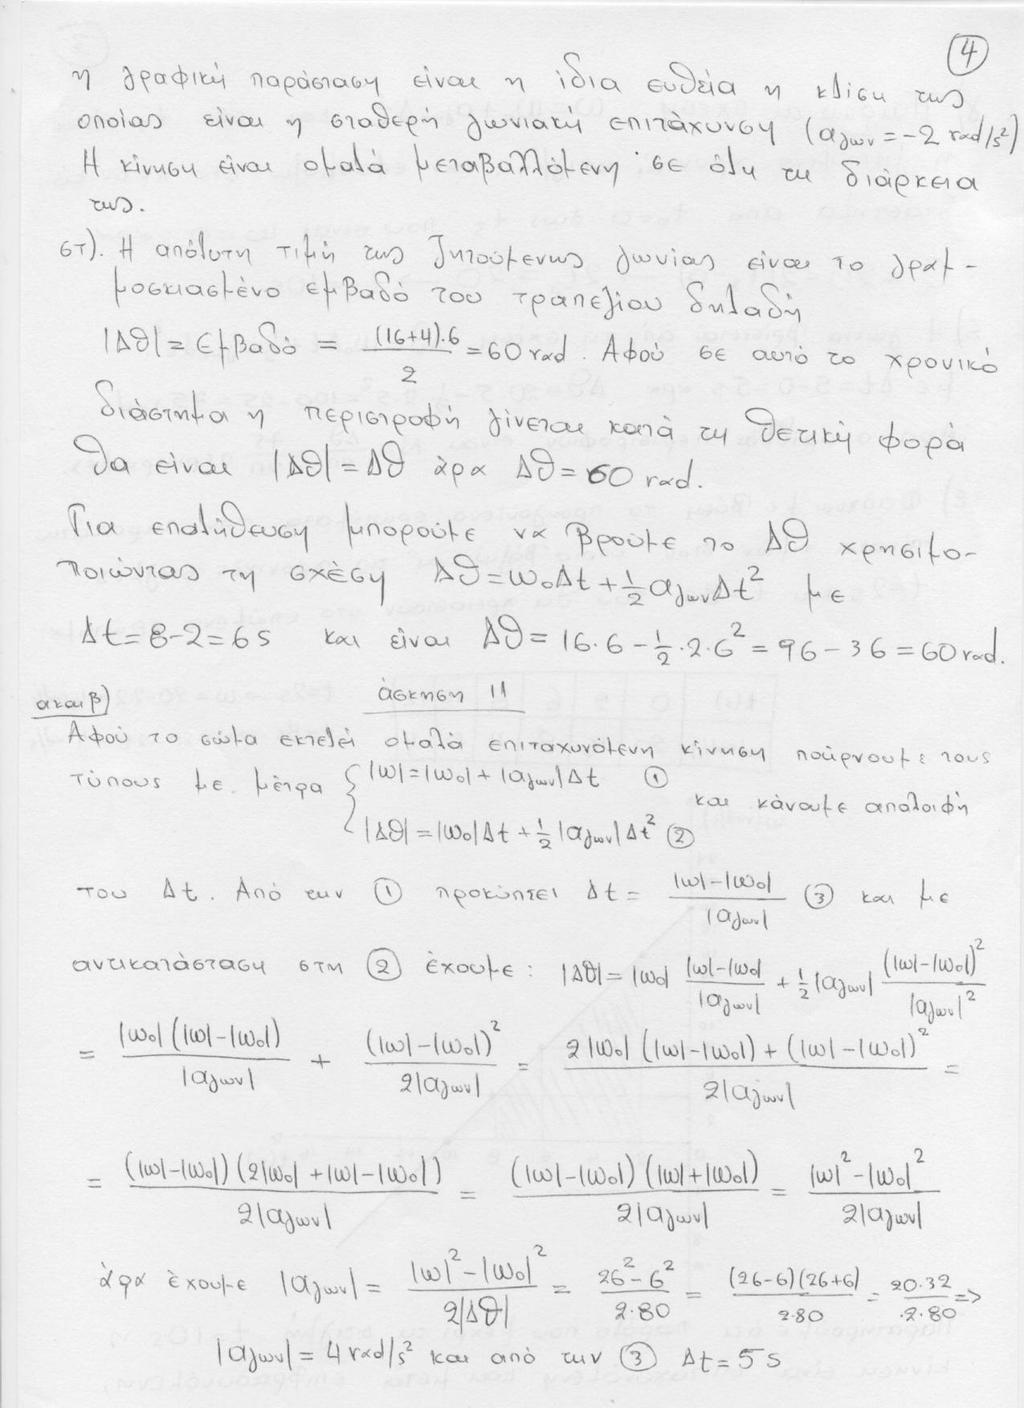 4
η γραφική παράσταση είναι η ίδια ευθεία η κλίση της
οποίας είναι η σταθερή γωνιακή επιτάχυνση (αγων = -2 rad/s²)
Η κίνηση είναι ομαλά μεταβαλλόμενη σε όλη τη διάρκεια
της.
στ). Η απόλυτη τιμή της ζητούμενης γωνίας είναι το γραμ-
μοσκιασμένο εμβαδό του τραπεζίου δηλαδή
|Δθ| = Εμβαδό = (16+4)·6/2 = 60 rad. Αφού σε αυτό το χρονικό
διάστημα η περιστροφή γίνεται κατά τη θετική φορά
θα είναι |Δθ| = Δθ άρα Δθ = 60 rad.
Για επαλήθευση μπορούμε να βρούμε το Δθ χρησιμο-
ποιώντας τη σχέση Δθ = ω₀Δt + ½ αγων Δt² με
Δt = 8-2 = 6s και είναι Δθ = 16·6 - ½·2·6² = 96 - 36 = 60 rad.
α και β) άσκηση 11
Αφού το σώμα εκτελεί ομαλά επιταχυνόμενη κίνηση παίρνουμε τους
τύπους με μέτρα { |ω| = |ω₀| + |αγων| Δt ①
και κάνουμε απαλοιφή
|Δθ| = |ω₀| Δt + ½ |αγων| Δt² ②
του Δt. Από την ① προκύπτει Δt = (|ω| - |ω₀|)/|αγων| ③ και με
αντικατάσταση στη ② έχουμε: |Δθ| = |ω₀| (|ω| - |ω₀|)/|αγων| + ½ |αγων| (|ω| - |ω₀|)²/|αγων|²
= |ω₀| (|ω| - |ω₀|)/|αγων| + (|ω| - |ω₀|)²/2|αγων| = (2|ω₀| (|ω| - |ω₀|) + (|ω| - |ω₀|)²)/2|αγων| =
= (|ω| - |ω₀|) (2|ω₀| + |ω| - |ω₀|)/2|αγων| = (|ω| - |ω₀|) (|ω| + |ω₀|)/2|αγων| = (|ω|² - |ω₀|²)/2|αγων|
άρα έχουμε |αγων| = (|ω|² - |ω₀|²)/2|Δθ| = (26² - 6²)/2·80 = (26-6)(26+6)/2·80 = 20·32/2·80 =>
|αγων| = 4 rad/s² και από την ③ Δt = 5 s